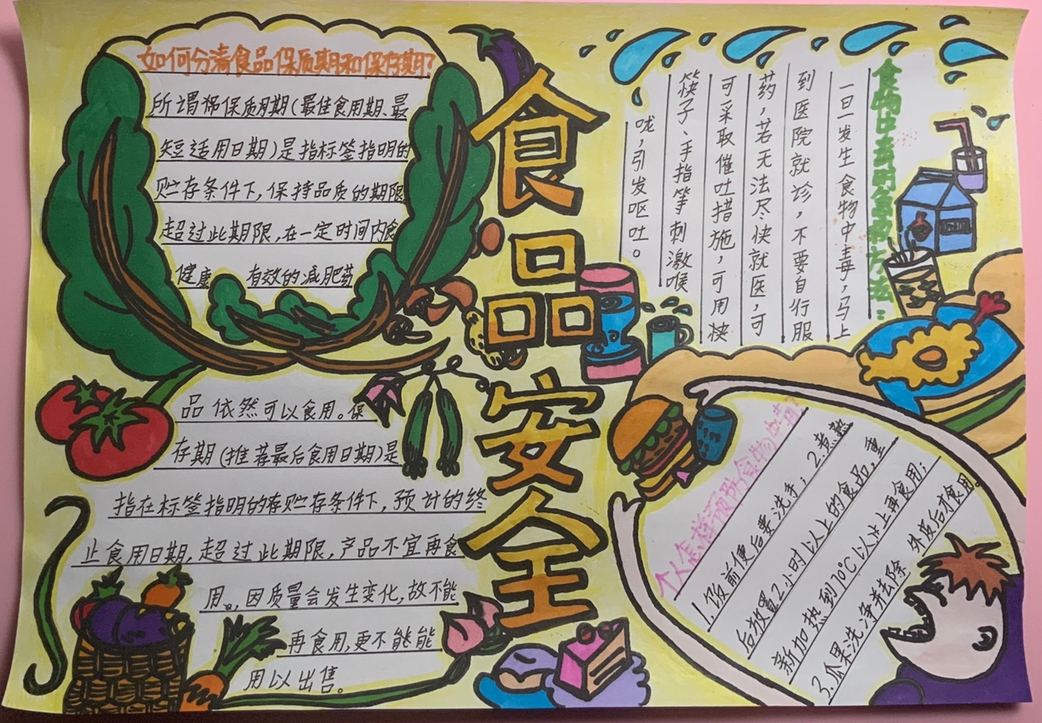 如何分清食品保质期和保存期?
所谓的保质期(最佳食用期、最
短适用日期)是指标签指明的
贮存条件下,保持品质的期限
超过此期限,在一定时间内
健康 有效的减肥药
品依然可以食用。保
存期(推荐最后食用日期)是
指在标签指明的存贮存条件下,预计的终
止食用日期,超过此期限,产品不宜再食
用。因质量会发生变化,故不能
再食用,更不能能
用以出售。
食品安全
食物中毒的急救方法:
一旦发生食物中毒,马上
到医院就诊,不要自行服
药,若无法尽快就医,可
可采取催吐措施,可用快
筷子、手指等刺激喉
咙,引发呕吐。
个人怎样预防食物中毒?
1.饭前便后要洗手;2.煮熟
后放置2小时以上的食品,重
新加热到70℃以上再食用;
3.瓜果洗净并去除外皮后才食用。